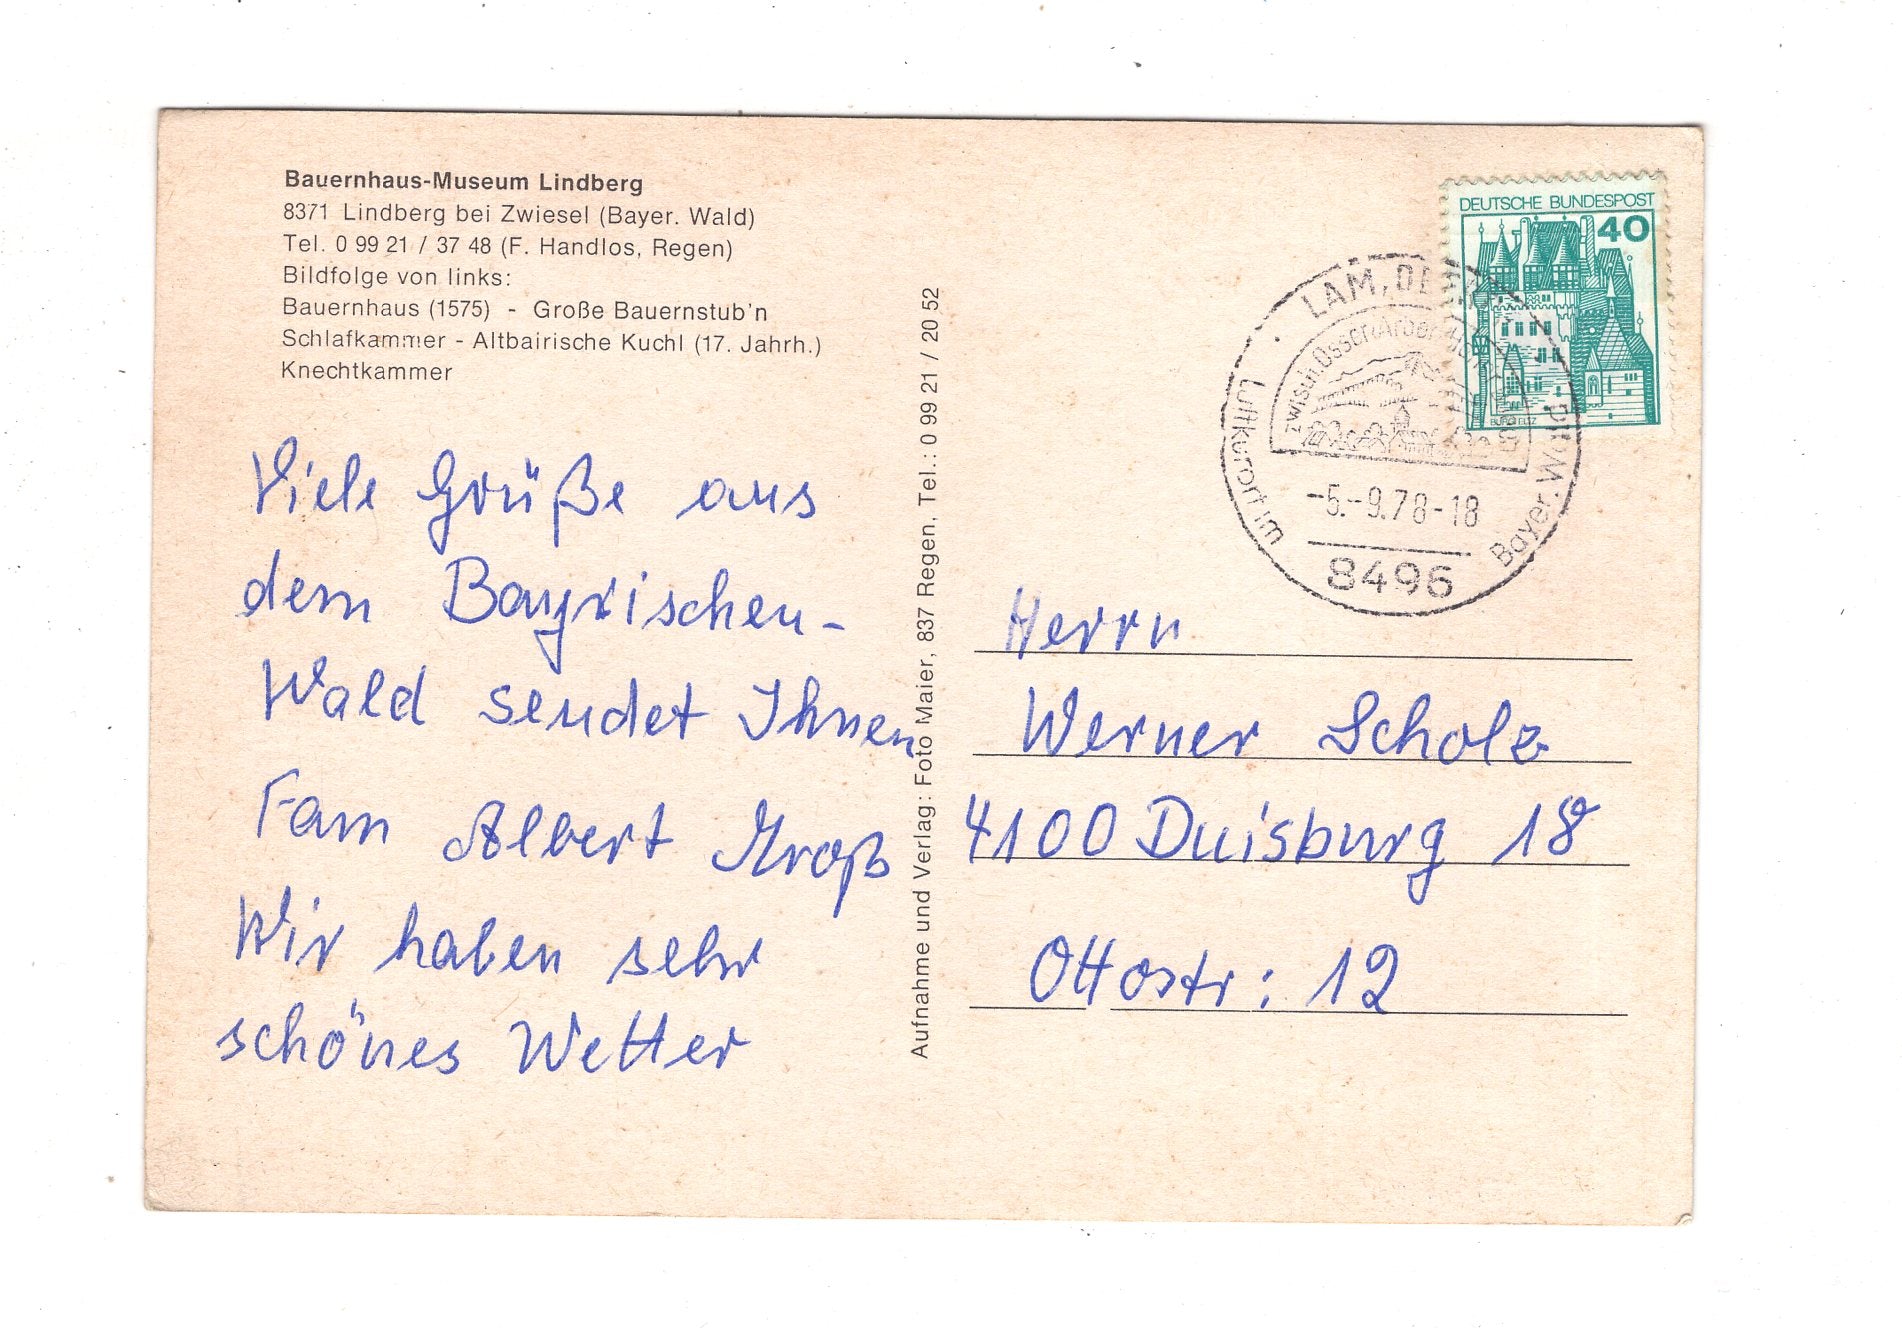 Bauernhaus-Museum Lindberg
8371 Lindberg bei Zwiesel (Bayer. Wald)
Tel. 0 99 21 / 37 48 (F. Handlos, Regen)
Bildfolge von links:
Bauernhaus (1575) - Große Bauernstub'n
Schlafkammer - Altbairische Kuchl (17. Jahrh.)
Knechtkammer
Viele Grüße aus
dem Bayrischen-
Wald sendet Ihnen
Fam Albert
Wir haben sehr
schönes Wetter
Aufnahme und Verlag: Foto Maier, 837 Regen, Tel.: 0 99 21 / 20 52
DEUTSCHE BUNDESPOST
40
BURG ELTZ
LAM,
zwisch. Osser, Arber
Luftkurort im
Bayer. Wald
-5.-9.78-18
8496
Herrn
Werner Scholz
4100 Duisburg 18
Ottostr: 12